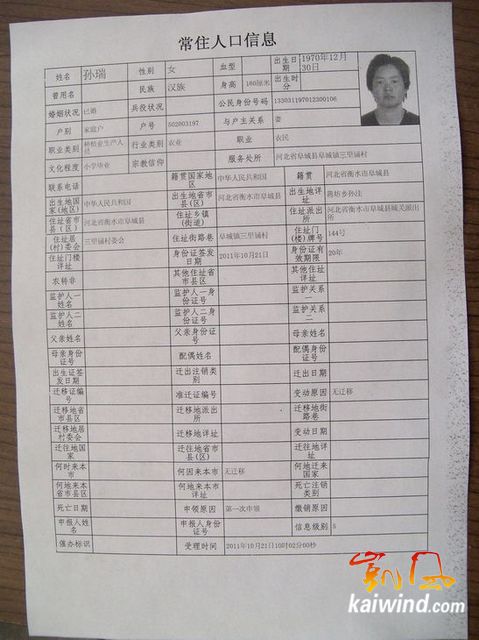 常住人口信息
姓名 孙瑞 性别 女 血型 出生日期 1970年12月30日
曾用名 民族 汉族 身高 160厘米 出生时分
婚姻状况 已婚 兵役状况 公民身份号码
户别 家庭户 户号 502003197 与户主关系 妻
职业类别 种植业生产人员 行业类别 农业 职业 农民
文化程度 小学毕业 宗教信仰 服务处所 河北省阜城县阜城镇三里铺村
联系电话 籍贯国家地区 中华人民共和国 籍贯 河北省衡水市阜城县
出生地国家(地区) 中华人民共和国 出生地省市县(区) 河北省衡水市阜城县 出生地详址
住址省市县(区) 河北省衡水市阜城县 住址乡镇(街道) 住址派出所 河北省衡水市阜城县城关派出所
住址居(村)委会 三里铺村委会 住址街路巷 阜城镇三里铺村 住址门(楼)牌号 144号
住址门楼详址 身份证签发日期 2011年10月21日 身份证有效期限 20年
农转非 其他住址省市县区 其他住址详址
监护人一姓名 监护人一身份证号 监护关系一
监护人二姓名 监护人二身份证号 监护关系二
父亲姓名 父亲身份证号 母亲姓名
母亲身份证号 配偶姓名 配偶身份证号
出生证签发日期 迁出注销类别 迁出日期
迁移证编号 准迁证编号 变动原因 无迁移
迁移地省市县区 迁移地派出所 迁移地街路巷
迁移地居村委会 迁移地详址 变动日期
迁往地国家 迁往地省市县(区) 迁往地详址
何时来本市 何因来本市 无迁移 何地迁来国家
何地来本省市县区 何地来本市详址 死亡注销类别
死亡日期 申领原因 第一次申领 缴销原因
申报人姓名 申报人身份证号 信息级别
催办标识 受理时间 2011年10月21日10时02分00秒
凯风
kaiwind.com